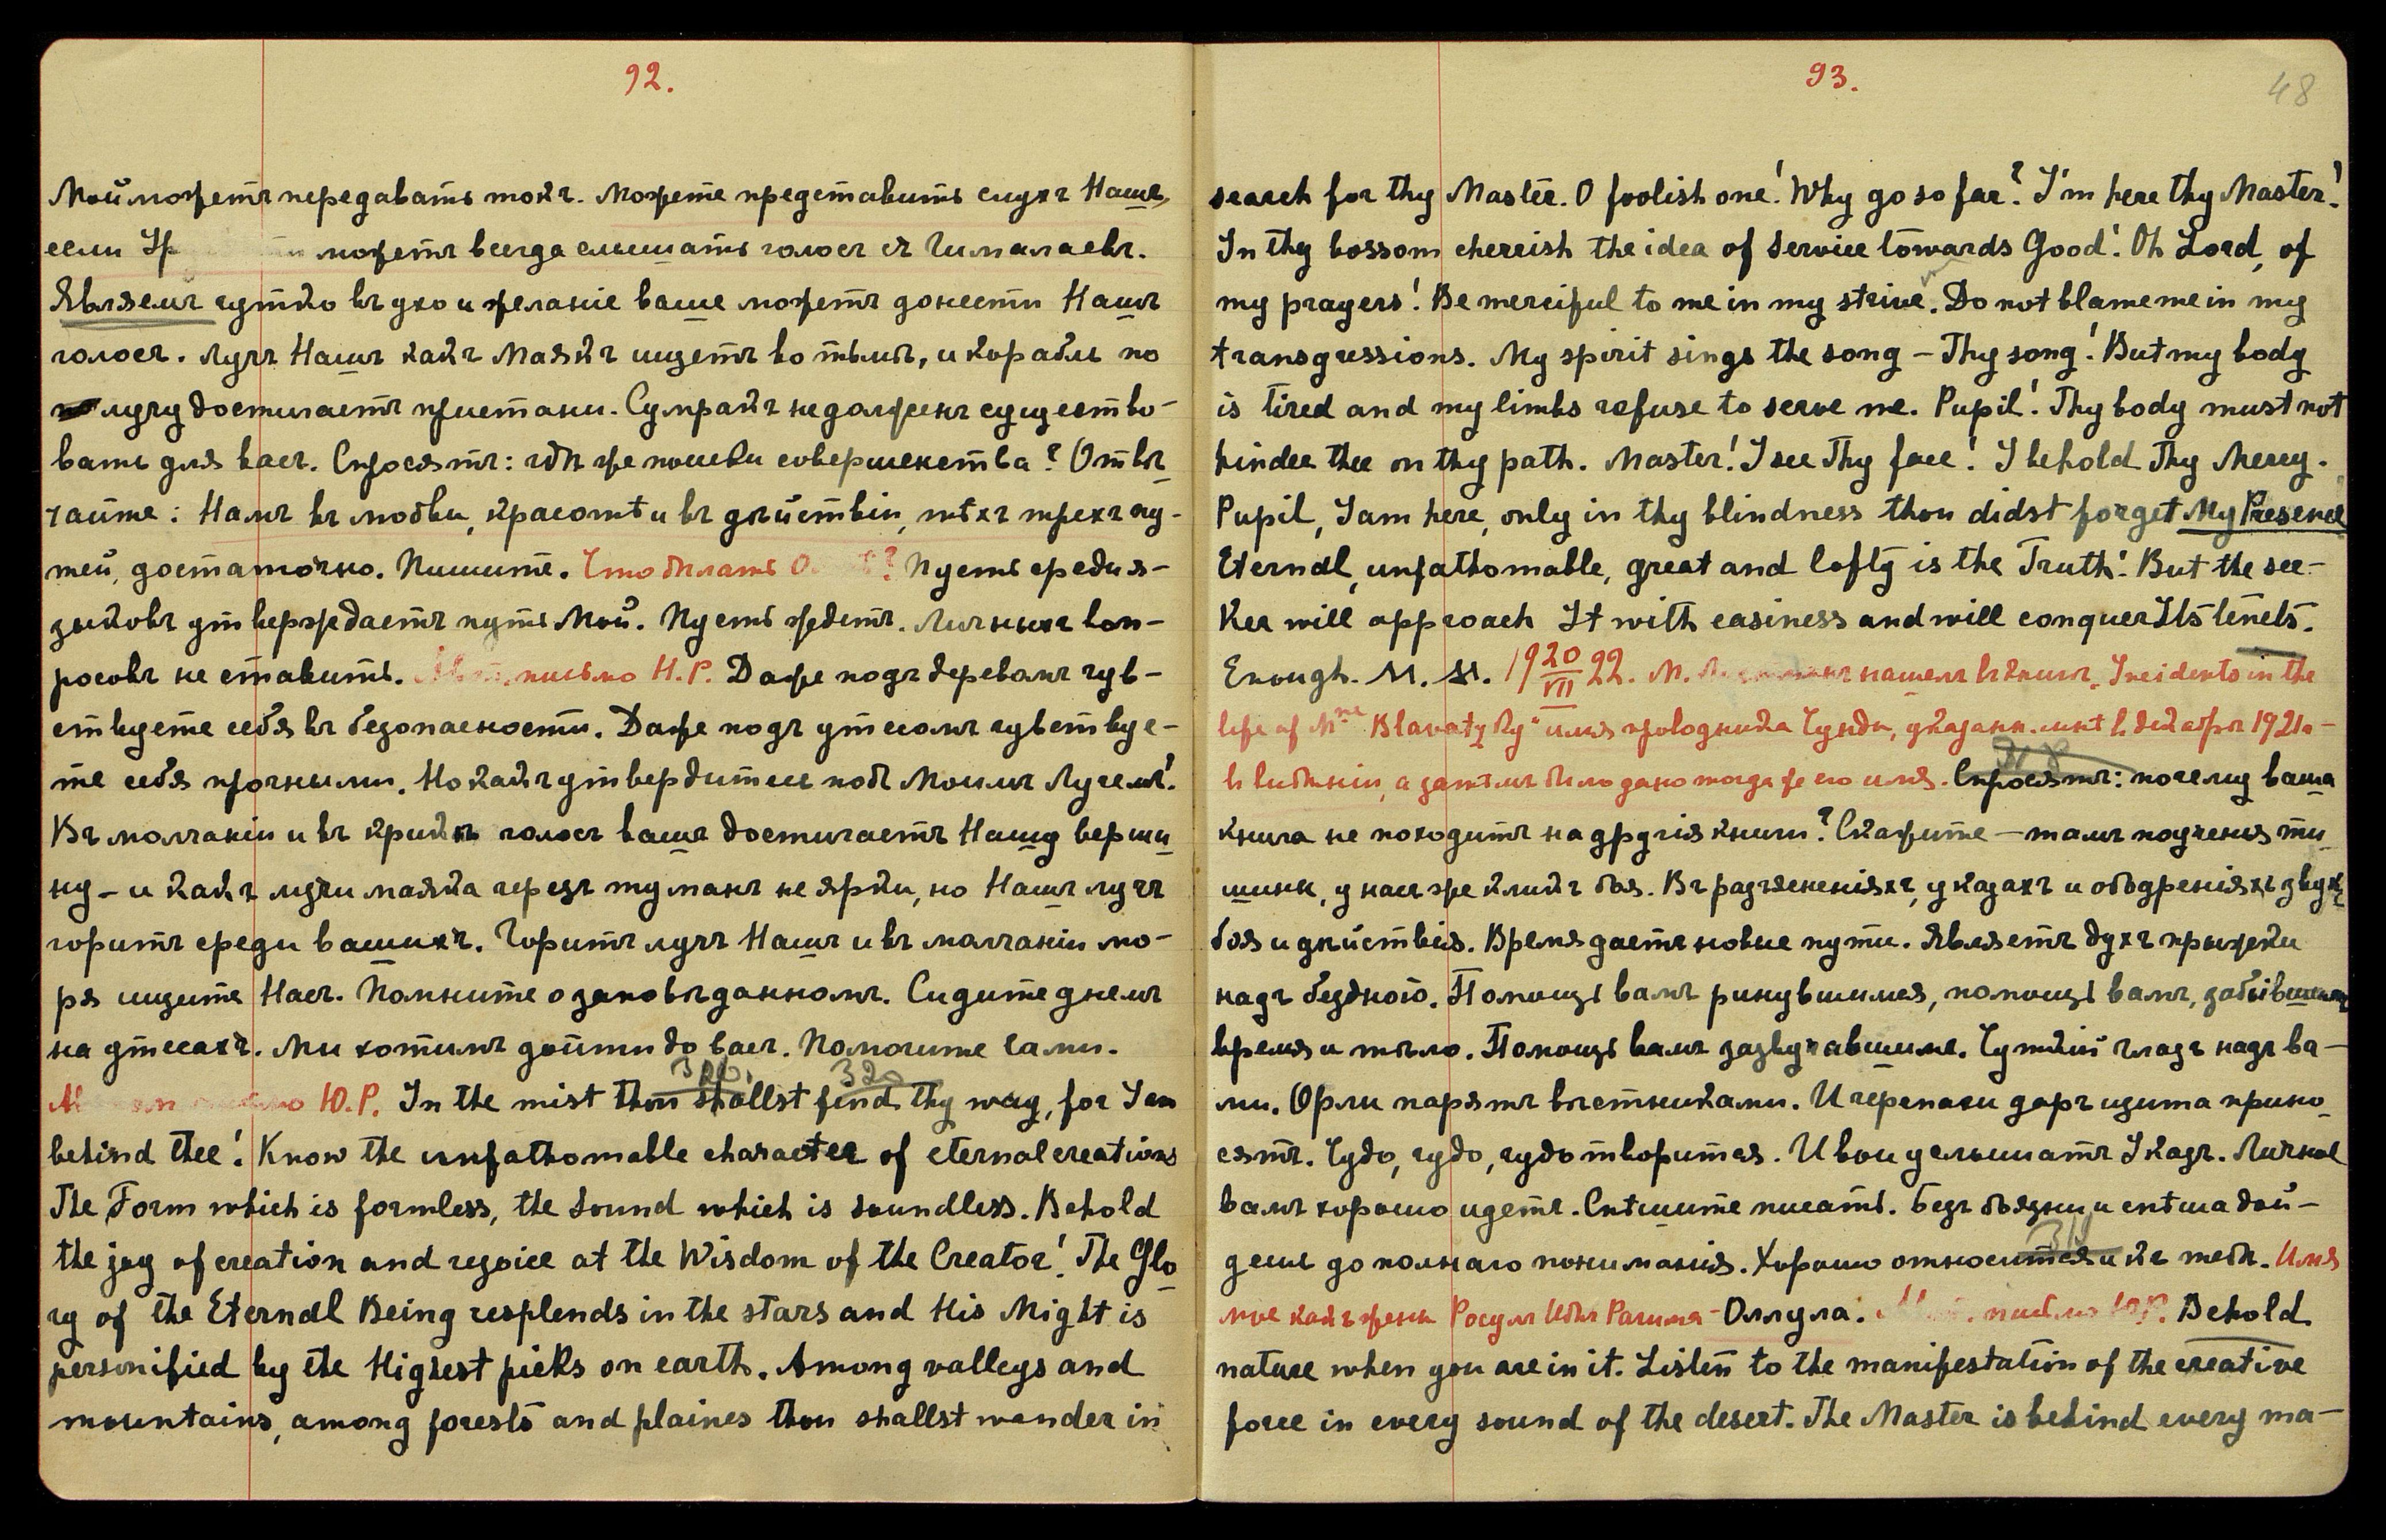 92.
Мой можетъ передавать токъ. Можете представить слухъ Нашъ,
если Ур можетъ всегда слышать голосъ съ Гималаевъ.
Являемъ чутко въ ухо и желаніе ваше можетъ донести Нашъ
голосъ. Лучъ Нашъ какъ Маякъ ищетъ во тьмѣ, и корабль по
лучу достигаетъ пристани. Сумракъ не долженъ существо-
вать для васъ. Спросятъ: гдѣ же поиски совершенства? Отвѣ
чайте: Намъ въ любви, красотѣ и въ дѣйствіи, тѣхъ трехъ пу-
тей, достаточно. Пишите. Что дѣлать О ? Пусть средь я-
зыковъ утверждаетъ путь Мой. Пусть ждетъ. Личныхъ воп-
росовъ не ставить. письмо Н.Р. Даже подъ деревомъ чув-
ствуете себя въ безопасности. Даже подъ утесомъ чувствуе-
те себя прочными. Но какъ утвердитесь подъ Моимъ Лучемъ!
Въ молчаніи и въ крикѣ голосъ вашъ достигаетъ Нашу верши
ну - и какъ лучи маяка черезъ туманъ не ярки, но Нашъ лучъ
горитъ среди вашихъ. Горитъ лучъ Нашъ и въ молчаніи мо-
ря ищите Насъ. Помните о заповѣданномъ. Сидите днемъ
на утесахъ. Мы хотимъ дойти до васъ. Помогите сами.
320
Ю.Р. In the mist thou shallst find thy way, for I am
behind thee! Know the unfathomable character of eternal creations
The Form which is formless, the Sound which is soundless. Behold
the joy of creation and rejoice at the Wisdom of the Creator! The Glo
ry of the Eterndl Being resplends in the stars and His Might is
personified by the Highest pieks on earth. Among valleys and
mountains, among forests and plaines thou shallst wander in
93.
48
search for thy Master. O foolish one! Why go so far? I'm here thy Master!
In thy bossom cherish the idea of service towards Good! Oh Lord, of
my prayers! Be merciful to me in my strive. Do not blame me in my
transgressions. My spirit sings the song - Thy song! But my body
is tired and my limbs refuse to serve me. Pupil! Thy body must not
hinder thee on thy path. Master! I see Thy face! I behold Thy Mercy.
Pupil, I am here, only in thy blindness thou didst forget My Presence
Eterndl, unfathomable, great and lofty is the Truth! But the see-
ker will approach It with easiness and will conquer Its tenets.
Enough. M. M. 19 20/VII 22. М. нашелъ въ книгѣ „Incidents in the
life of Mme Blavatzky“ имя проводника Чунды, указанн. мнѣ в декабрѣ 1921 г.-
в видѣніи, а затѣмъ было дано тогда же его имя. Спросятъ: почему ваша
книга не походитъ на другія книги? Скажите - тамъ поученія ти_
шины, у насъ же кликъ боя. Въ разъясненіяхъ, указахъ и ободреніяхъ звукъ
боя и дѣйствія. Время даетъ новые пути. Являетъ духъ прыжки
надъ бездною. Помощь вамъ ринувшимся, помощь вамъ, забывшимъ
время и тѣло. Помощь вамъ зазвучавшимъ. Чуткій глазъ надъ ва-
ми. Орлы парятъ вѣстниками. И черепахи даръ щита прино_
сятъ. Чудо, чудо, чудо творится. И вои услышатъ Указъ. Личное
вамъ хорошо идетъ. Спѣшите писать. Безъ боязни и спѣха дой-
дешь до полнаго пониманія. Хорошо относится и къ тебѣ. Имя
мое какъ жены Росулъ Ибнъ Рагима - Оллула. Ю.Р. Behold
nature when you are in it. Listen to the manifestation of the creative
force in every sound of the desert. The Master is behind every ma-